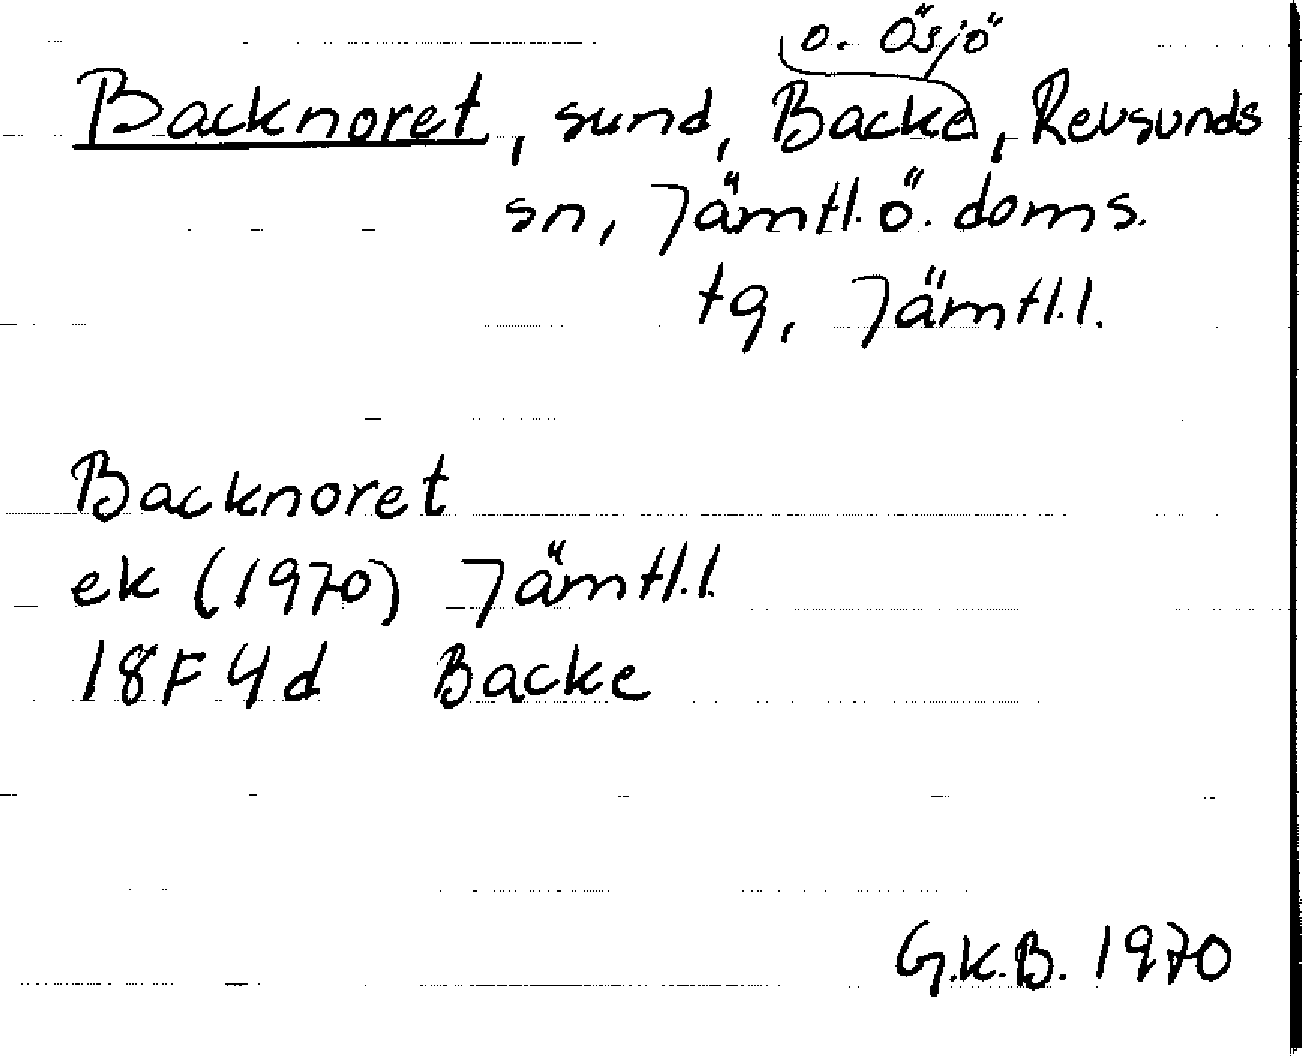 o. Ösjö
Backnoret, sund, Backe, Revsunds
sn, Jämtl. ö. doms.
tg, Jämtl. l.
Backnoret
ek (1970) Jämtl. l.
18F4d Backe
G.K.B. 1970